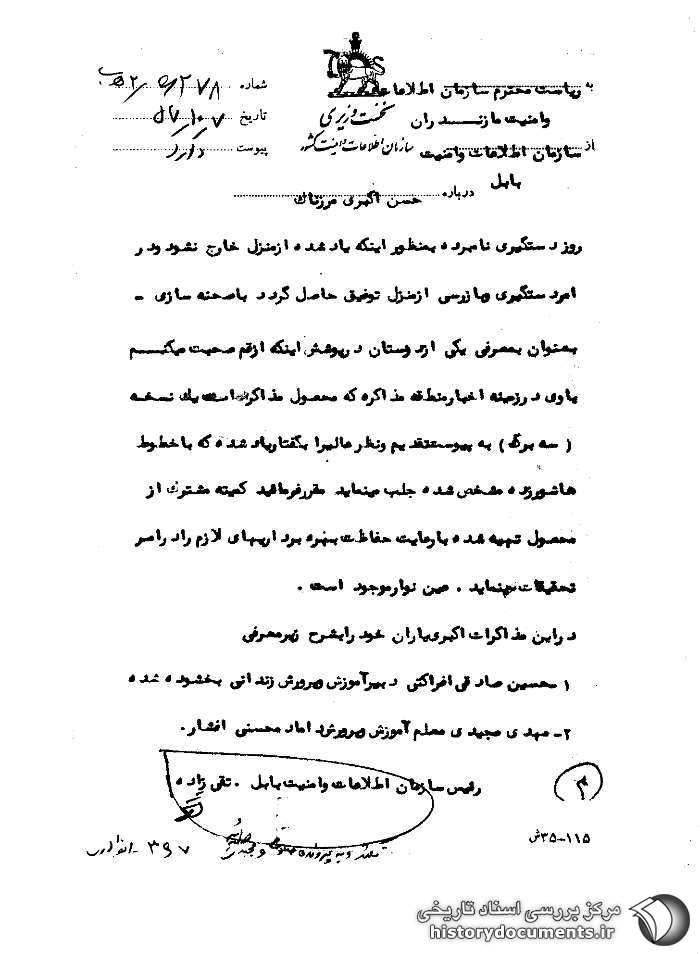 به ریاست محترم سازمان اطلاعات
وامنیت مازندران
از سازمان اطلاعات وامنیت
بابل
نخست وزیری
سازمان اطلاعات وامنیت کشور
شماره ۲۷۸
تاریخ ۵۷/۱۰/۷
پیوست دارد
درباره حسن اکبری مرزناک
روز دستگیری نامبرده بمنظور اینکه یاد شده ازمنزل خارج نشود ودر
امر دستگیری وبازرسی ازمنزل توفیق حاصل گردد باصحنه سازی -
بعنوان بمعرفی یکی ازدوستان درپوشش اینکه ازقم صحبت میکنم
باوی درزمینه اخبارمنطقه مذاکره که محصول مذاکرات یک نسخه
( سه برگ ) به پیوستتقدیم ونظرعالیرا بگفتاریاد شده که باخطوط
هاشورزده مشخص شده جلب مینماید مقررفرمائید کمیته مشترک از
محصول تهیه شده بارعایت حفاظت بهره برداریهای لازم رادراسر
تحقیقات بنماید . عین نوارموجود است .
دراین مذاکرات اکبریاران خود رابشرح زیرمعرفی
۱ـ حسین صادقی افراکتی دبیرآموزش وپرورش زندانی بخشوده شده
۲- مهدی مجیدی معلم آموزش وپرورش داماد محسنی افشار.
رئیس سازمان اطلاعات وامنیت بابل . تقی زاده
۳
۳۵-۱۱۵ش
مرکز بررسی اسناد تاریخی
historydocuments.ir